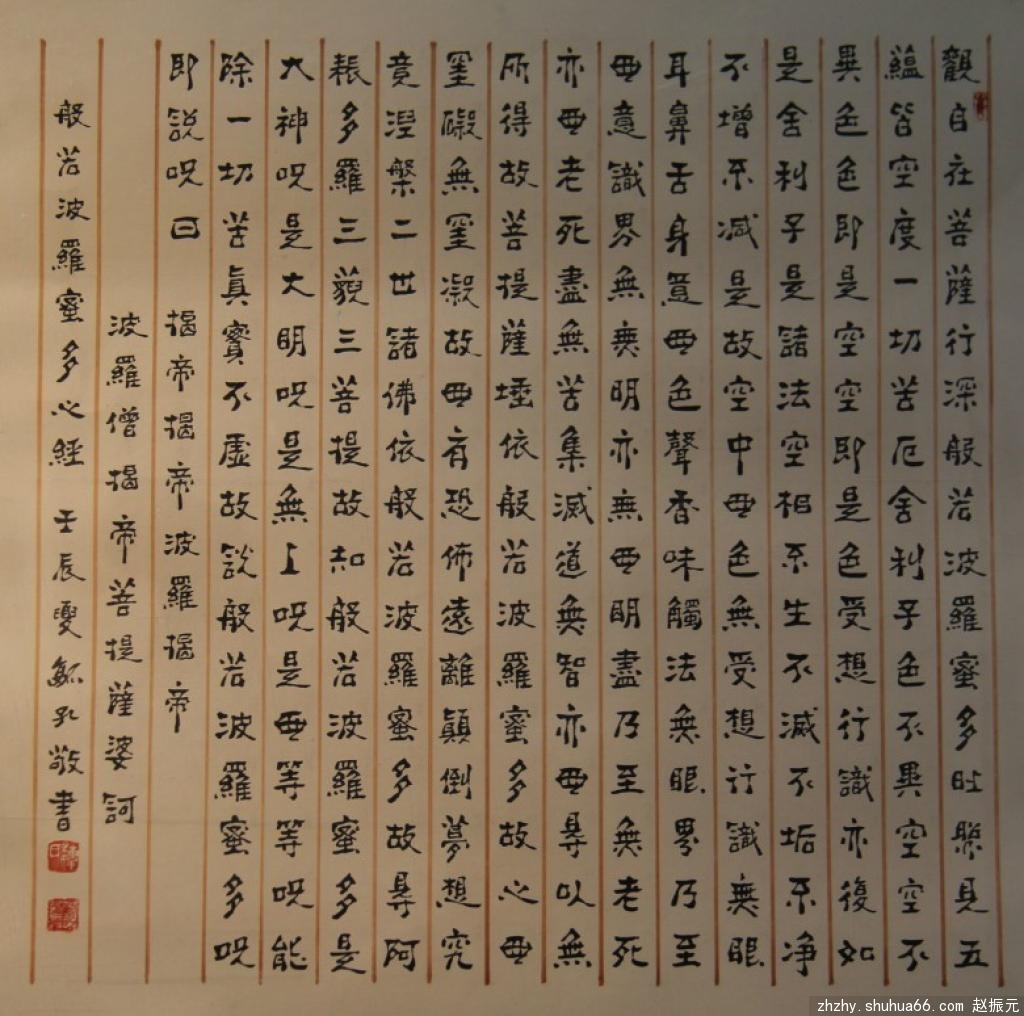 觀自在菩薩行深般若波羅蜜多時照見五
蘊皆空度一切苦厄舍利子色不異空空不
異色色即是空空即是色受想行識亦復如
是舍利子是諸法空相不生不滅不垢不净
不增不减是故空中毋色無受想行識無眼
耳鼻舌身意毋色聲香味觸法無眼界乃至
毋意識界無無明亦無毋明盡乃至無老死
亦毋老死盡無苦集滅道無智亦毋得以無
所得故菩提薩埵依般若波羅蜜多故心毋
罣礙無罣礙故毋有恐怖遠離顛倒夢想究
竟涅槃二世諸佛依般若波羅蜜多故得阿
耨多羅三藐三菩提故知般若波羅蜜多是
大神呪是大明呪是無上呪是毋等等呪能
除一切苦真實不虛故說般若波羅蜜多呪
即說呪曰 揭帝揭帝波羅揭帝
波羅僧揭帝菩提薩婆訶
般若波羅蜜多心經 壬辰夏穌孔敬書
zhzhy.shuhua66.com 赵振元